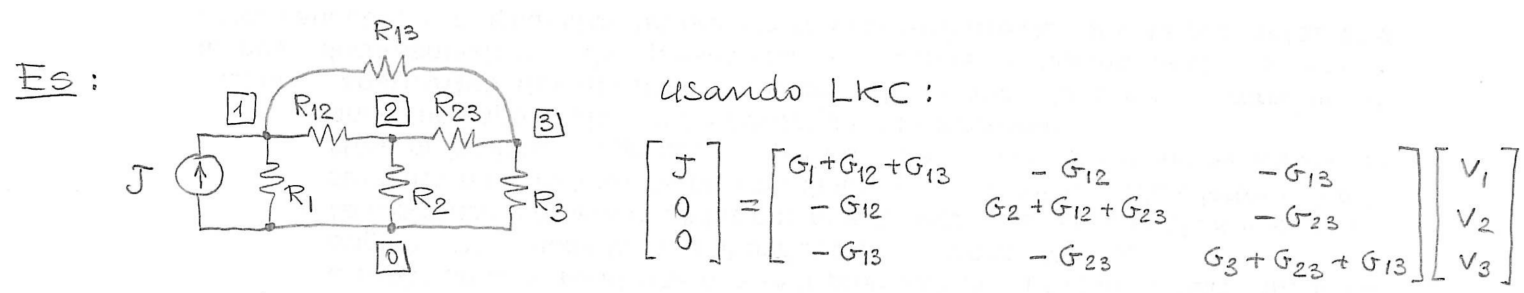 Es:
R13
1 R12 2 R23 3
J R1 R2 R3
0
usando LKC:
[ J ] = [ G1+G12+G13 - G12 - G13 ] [ V1 ]
[ 0 ] [ - G12 G2+G12+G23 - G23 ] [ V2 ]
[ 0 ] [ - G13 - G23 G3+G23+G13 ] [ V3 ]